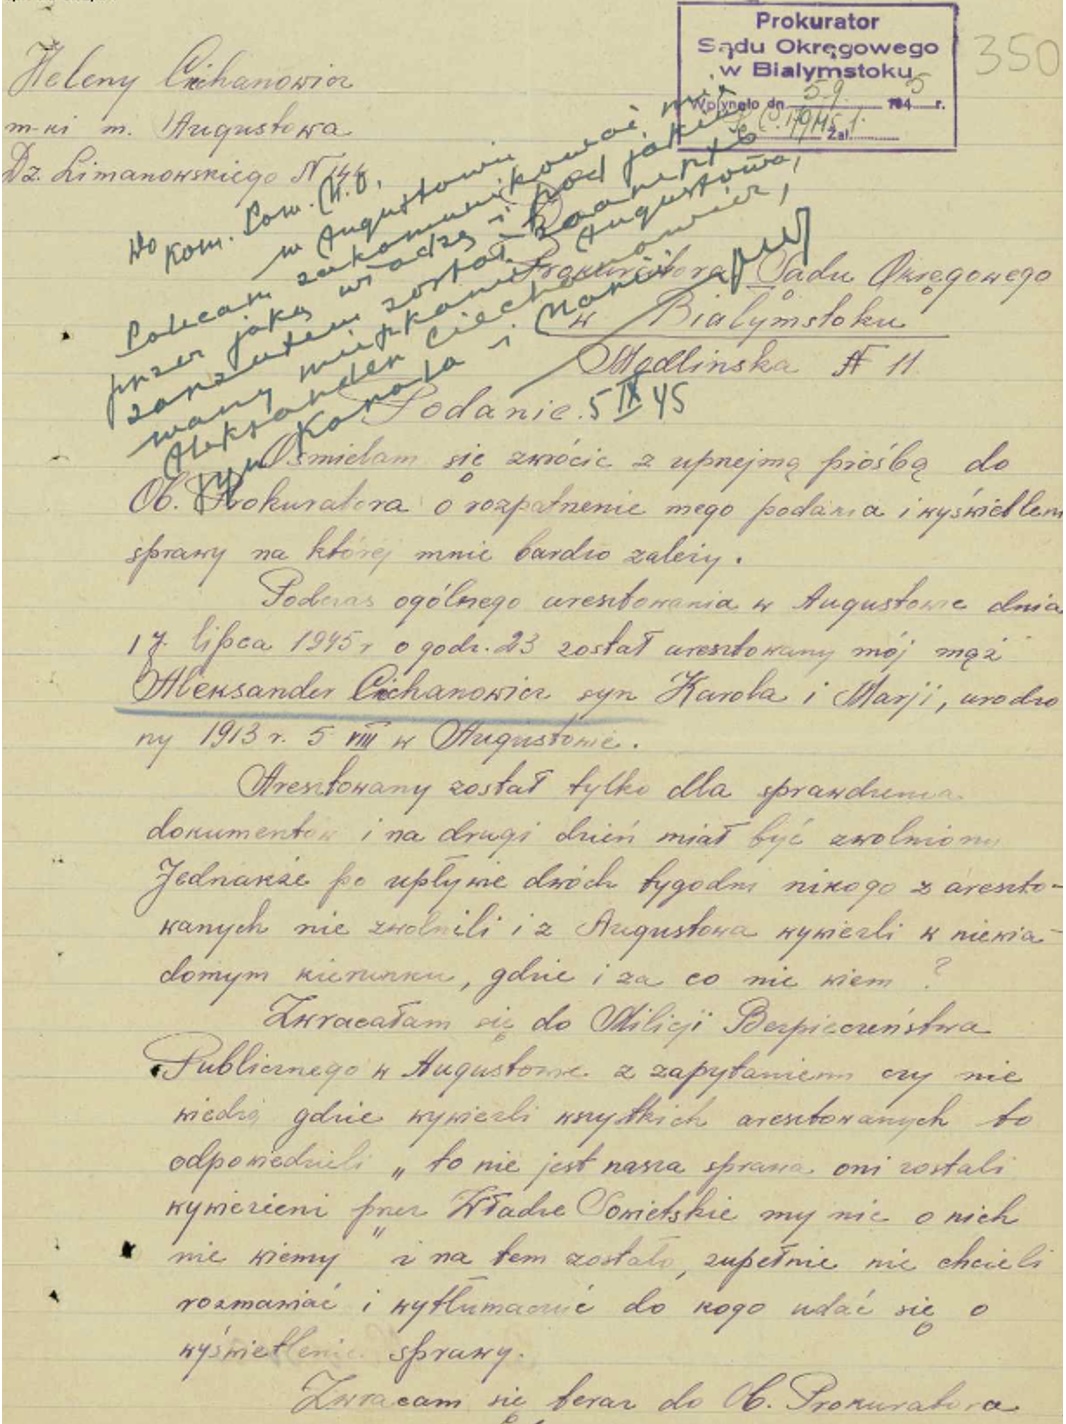 Heleny Cichanowicz
m-ki m. Augustowa
Dz. Limanowskiego N 44
Prokurator
Sądu Okręgowego
w Białymstoku
Wpłynęło dn. 5.9. 1945 r.
Zał.
350
Do
Kom. Pow. M.O.
w Augustowie
Polecam zakomunikować mi
przez jaką władzę i pod jakim
zarzutem został zaareszto
wany mieszkaniec Augustowa,
Aleksander Ciechanowicz,
syn Karola i Marii
Prokuratora Sądu Okręgowego
w Białymstoku
Modlinska N 11
Podanie. 5 IX 45
Ośmielam się zwrócic z uprzejmą prośbą do
Ob. Prokuratora o rozpatrzenie mego podania i wyświetlenie
sprawy na której mnie bardzo zależy.
Podczas ogólnego aresztowania w Augustowie dnia
17. lipca 1945 r o godz. 23 został aresztowany mój mąż
Aleksander Cichanowicz syn Karola i Marji, urodzo
ny 1913 r. 5 VIII w Augustowie.
Aresztowany został tylko dla sprawdzenia
dokumentow i na drugi dzień miał być zwolniony
Jednakże po upływie dwóch tygodni nikogo z areszto-
wanych nie zwolnili i z Augustowa wywiezli w niewia-
domym kierunku, gdzie i za co nie wiem ?
Zwracałam się do Milicji Bezpieczeństwa
Publicznego w Augustowie z zapytaniem czy nie
wiedzą gdzie wywiezli wszytkich aresztowanych to
odpowiedzieli „ to nie jest nasza sprawa oni zostali
wywiezieni przez Władze Sowietskie my nic o nich
nie wiemy " i na tem zostało, zupełnie nie chcieli
rozmawiać i wytłumaczić do kogo udać się o
wyświetlenie sprawy.
Zwracam się teraz do Ob. Prokuratora